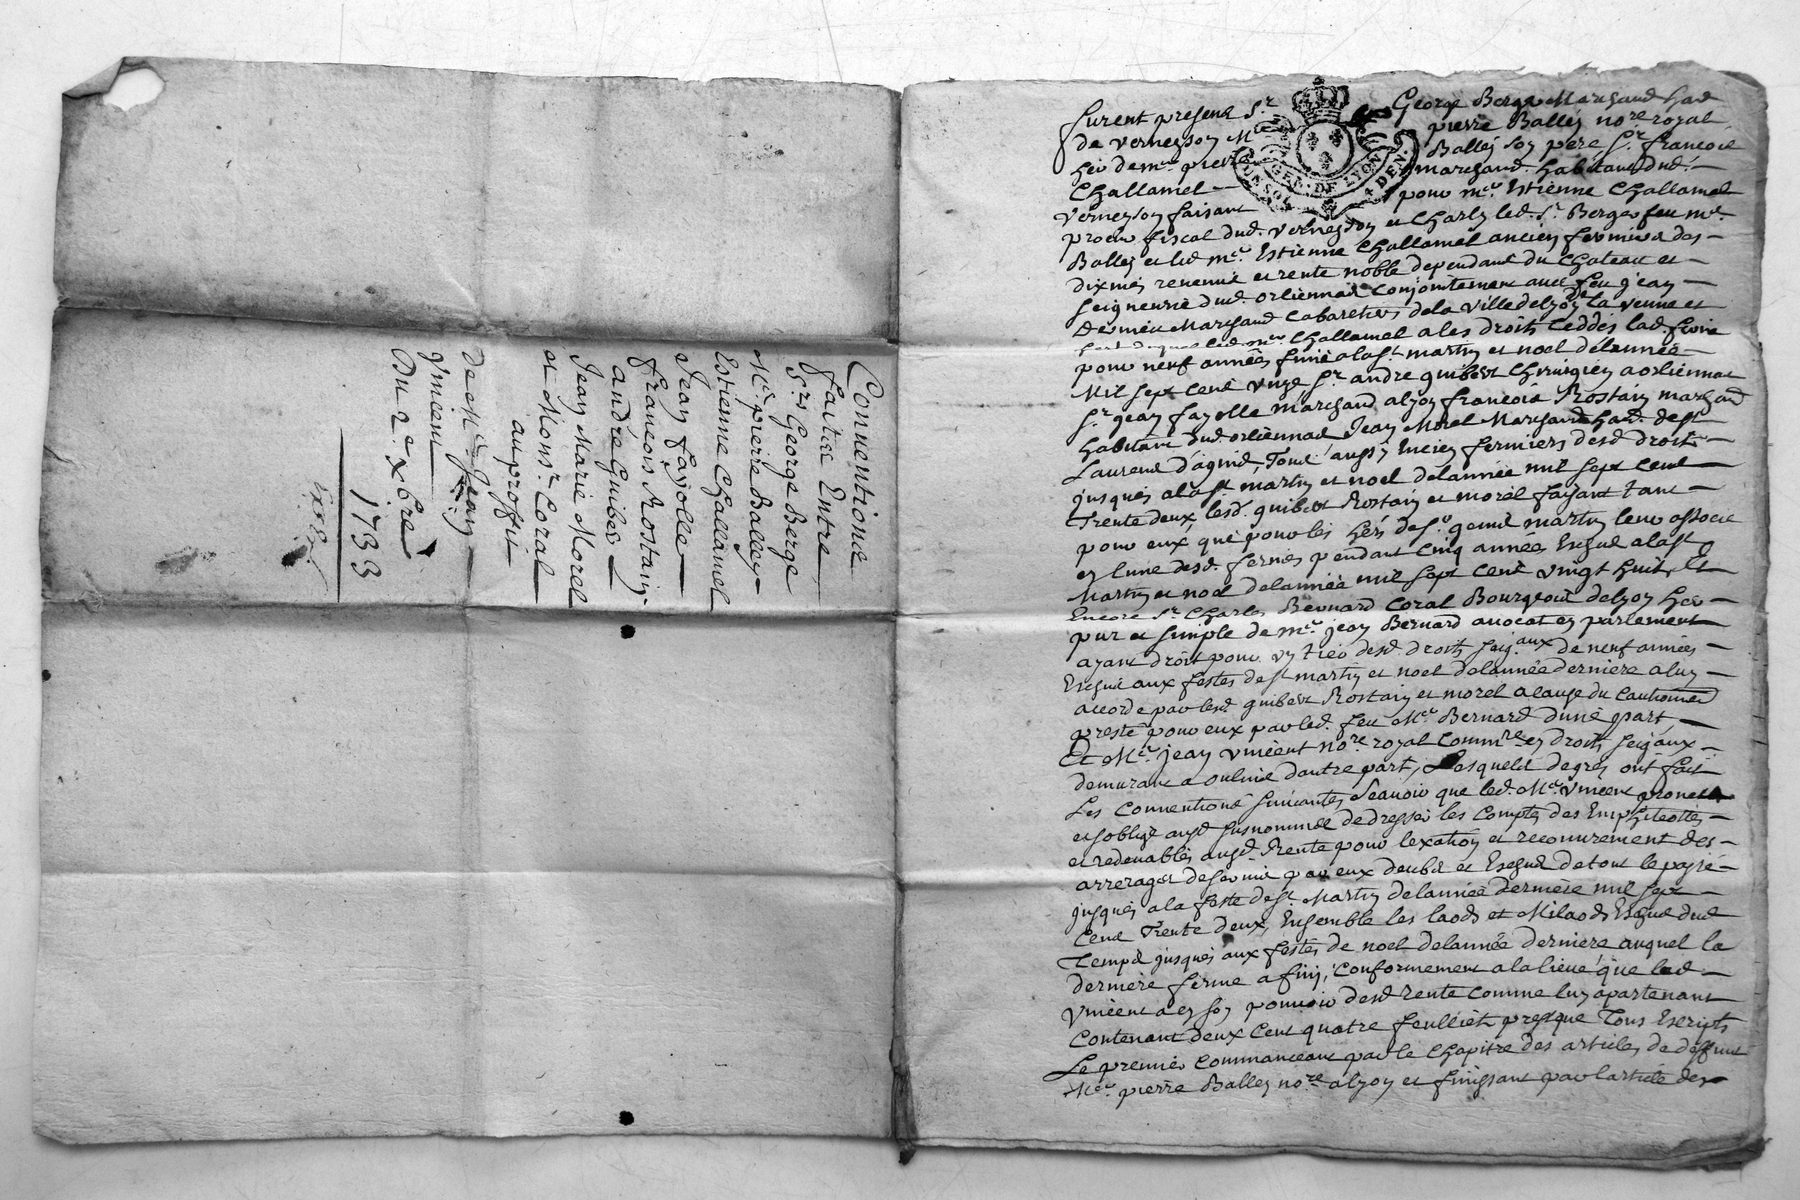 Conventions
faites Entre
Srs George Berge
Me. pierre Balley
Estienne Challamel
Jean fayolle
françois Rostain
andre Guiber
Jean Marie Morel
et Monsr Coral
au proffit
de Me. Jean
Vincent
Du 2e. xbre
1733
furent presens Sr. George Berge Marchand hant
de vernezon Me pierre Balley nore royal
her de mre pierre Balley son pere Sr. francois
Challamel marchand habitant dud.
Vernezon faisant pour mre Estienne Challamel
procur fiscal dud. Vernezon et Charly led. Sr. Berge feu mre.
Balley et led mre. Estienne Challamel anciens fermiers des
dixmes revenus et rente noble dependant du chateau et
seigneurie dud. orliennas conjointement avec feu jean
marchand cabaretier de la ville de lyon la veuve et
led. mre Challamel a les droits ceddés lad. ferme
pour neuf années finie a la st. martin et noel de lannée
Mil sept cent vingt Sr. andre guibert chirurgien a orliennas
Sr. jean fayolle marchand a lyon francois Rostain marchand
habitant dud. orliennas Jean Morel Marchand hant. de st
Laurent d'agnie, Tous aussy anciens fermiers desd droits
jusques a la st. martin et noel de lannée mil sept cent
Trente deux lesd. guibert Rostain et morel faisant tant
pour eux que pour les hers de Sr. martin leur associé
en lune desd. fermes pendant cinq années Escheue a la st
Martin et noel de lannée mil sept cent vingt huit, Et
Encore Sr. Charles Bernard Coral Bourgeois de lyon her
pur et simple de mre. jean Bernard avocat en parlement
ayant droit pour un tier desd. droits seig.aux de neuf années
Escheue aux festes de st martin et noel de lannée derniere a luy
accordé par lesd. guibert Rostain et morel a cause du cautionnement
presté pour eux par led. feu Mre. Bernard d'une part,
Et Me. jean vincent nore royal commre en droits seigaux
demurant a oulins dautre part, Lesquels de gré ont fait
Les conventions suivantes, Scavoir que led. Me. Vincent promet
et soblige ausd susnommés de dresser les comptes des Emphiteotes
et redevables ausd. Rente pour lexation et recouvrement des
arrerages de servis par eux deubs et Escheus de tout le passé
jusques a la feste de st. Martin de lannée derniere mil sept
Cent Trente deux, Ensemble les laods et Milaods Escheus dud
Temps jusques aux festes de noel de lannée derniere, auquel la
derniere ferme a finy, Conformement a la lieve que led.
Vincent a en son pouvoir desd rente comme luy apartenant
Contenant deux cent quatre feulliets presque Tous Escripts
Le premier commanceant par le Chapitre des articles de deffunt
Me. pierre Balley nore a lyon et finissant par larticle des